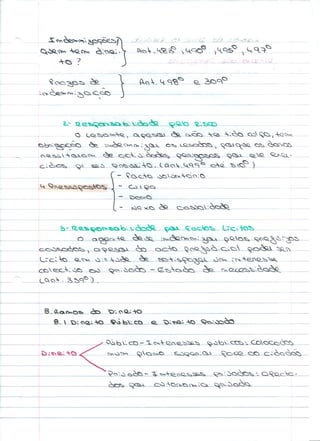 Indemnizações
Quem tem direi-
to ?
Art. 483º, 490º, 495º, 497º
Prazos de
indemnização
Art. 498º e 309º
2- Responsabilidade pelo risco
O lesante, apesar de não ter tido culpa, tem
obrigação de indemnizar os lesados, porque os danos
resultaram de actividades perigosas por ele exer-
cidas p/ seu proveito. (art. 499º até 510º)
4 Pressupostos
- Facto voluntário
- Culpa
- Dano
- Nexo de causalidade
3- Responsabilidade por Factos Lícitos
O agente deve indemnizar pelos prejuízos
causados, apesar do acto prejudicial poder ser
lícito em virtude de satisfazer um interesse
colectivo ou privado - Estado de necessidade
(art. 339º).
8. Ramos do Direito
8.1 Direito Público e Direito Privado
Direito
Público - Interesses públicos: colocados
num plano superior face ao cidadão
Privado - Interesses privados:
dos por autonomia privada